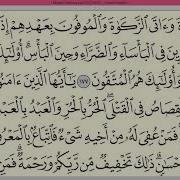 وَءَاتَى ٱلزَّكَوٰةَ وَٱلْمُوفُونَ بِعَهْدِهِمْ إِذَ
ينَ فِى ٱلْبَأْسَآءِ وَٱلضَّرَّآءِ وَحِينَ ٱلْبَأْسِ أُو۟لَـٰٓئِكَ
وَأُو۟لَـٰٓئِكَ هُمُ ٱلْمُتَّقُونَ ١٧٧ يَـٰٓأَيُّهَا ٱلَّذِينَ ءَامَ
قِصَاصُ فِى ٱلْقَتْلَى ٱلْحُرُّ بِٱلْحُرِّ وَٱلْعَبْدُ بِٱلْعَبْدِ
فَمَنْ عُفِىَ لَهُۥ مِنْ أَخِيهِ شَىْءٌ فَٱتِّبَاعٌۢ بِٱلْمَعْرُ
حْسَـٰنٍ ذَٰلِكَ تَخْفِيفٌ مِّن رَّبِّكُمْ وَرَحْمَةٌ فَمَنِ